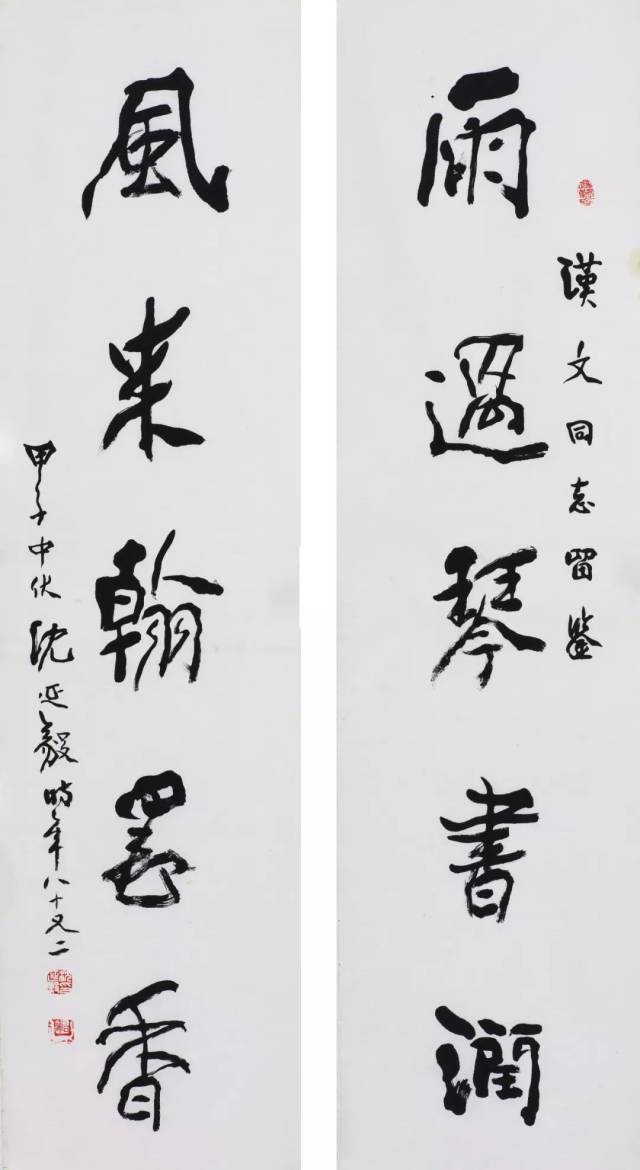 漢文同志留鑒
雨過琴書潤
風来翰墨香
甲子中伏沈延毅時年八十又二